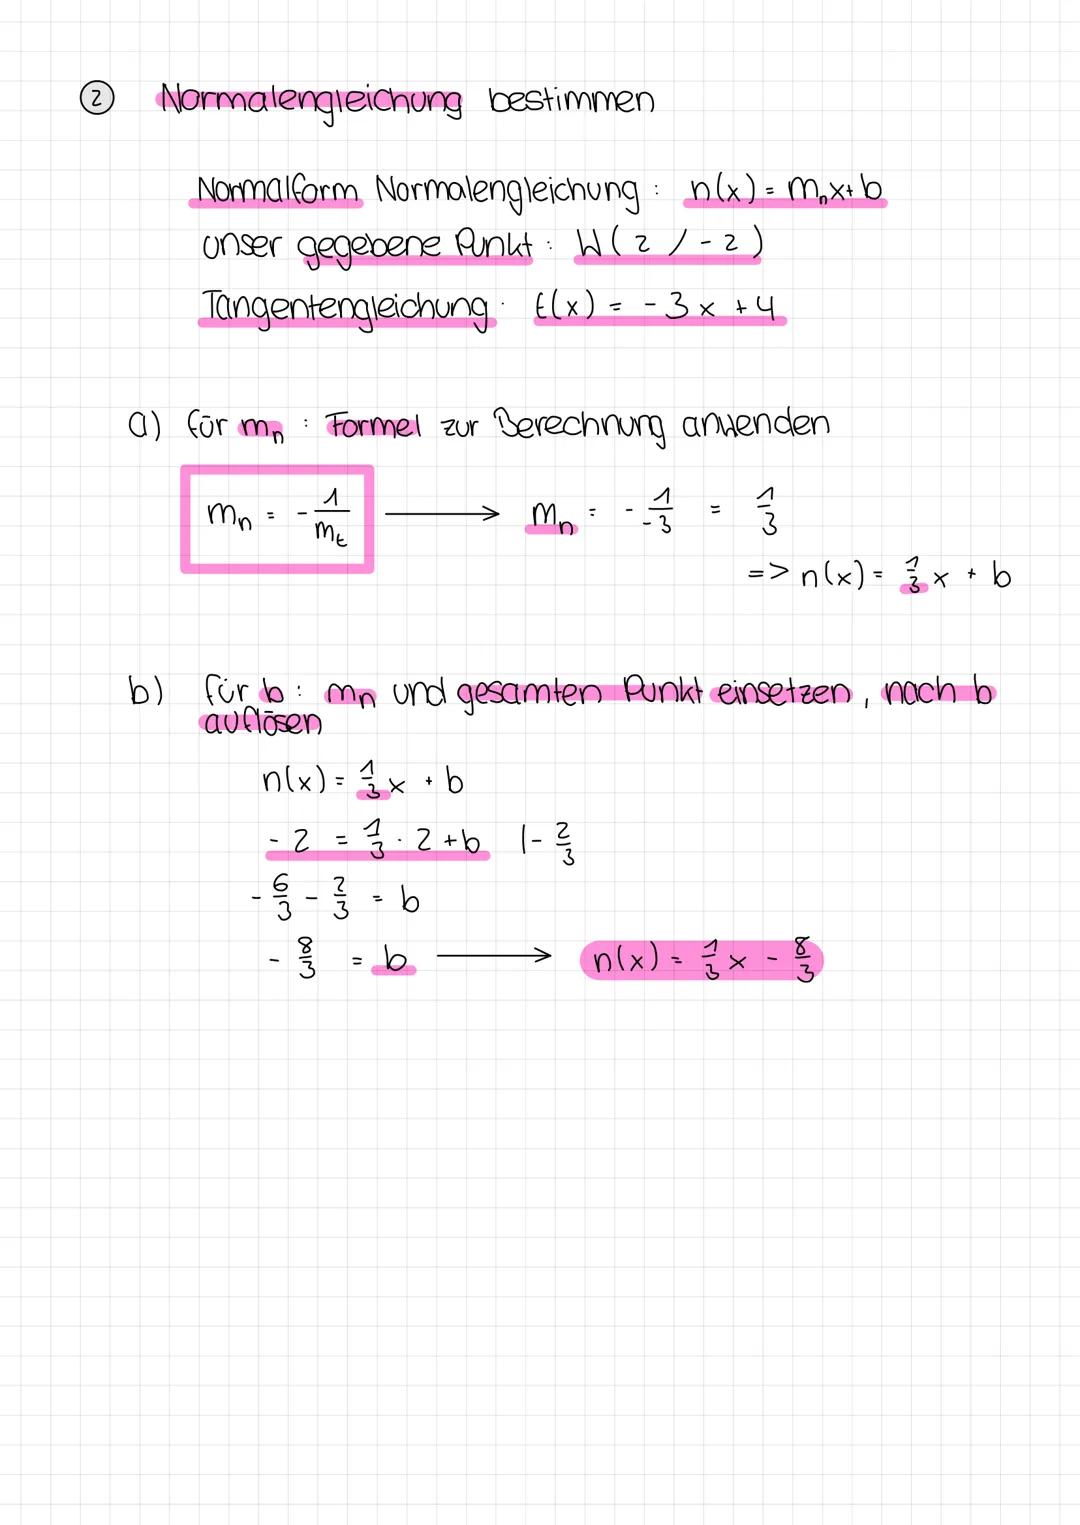 2 Normalengleichung bestimmen
Normalform Normalengleichung : n(x) = mₙx + b
unser gegebene Punkt : W ( 2 / - 2 )
Tangentengleichung : t(x) = - 3 x + 4
a) für mₙ : Formel zur Berechnung anwenden
mₙ = - 1/mₜ ⟶ mₙ = - 1/-3 = 1/3
=> n(x) = 1/3 x + b
b) für b : mₙ und gesamten Punkt einsetzen , nach b
auflösen
n(x) = 1/3 x + b
- 2 = 1/3 · 2 + b |- 2/3
- 6/3 - 2/3 = b
- 8/3 = b ⟶ n(x) = 1/3 x - 8/3